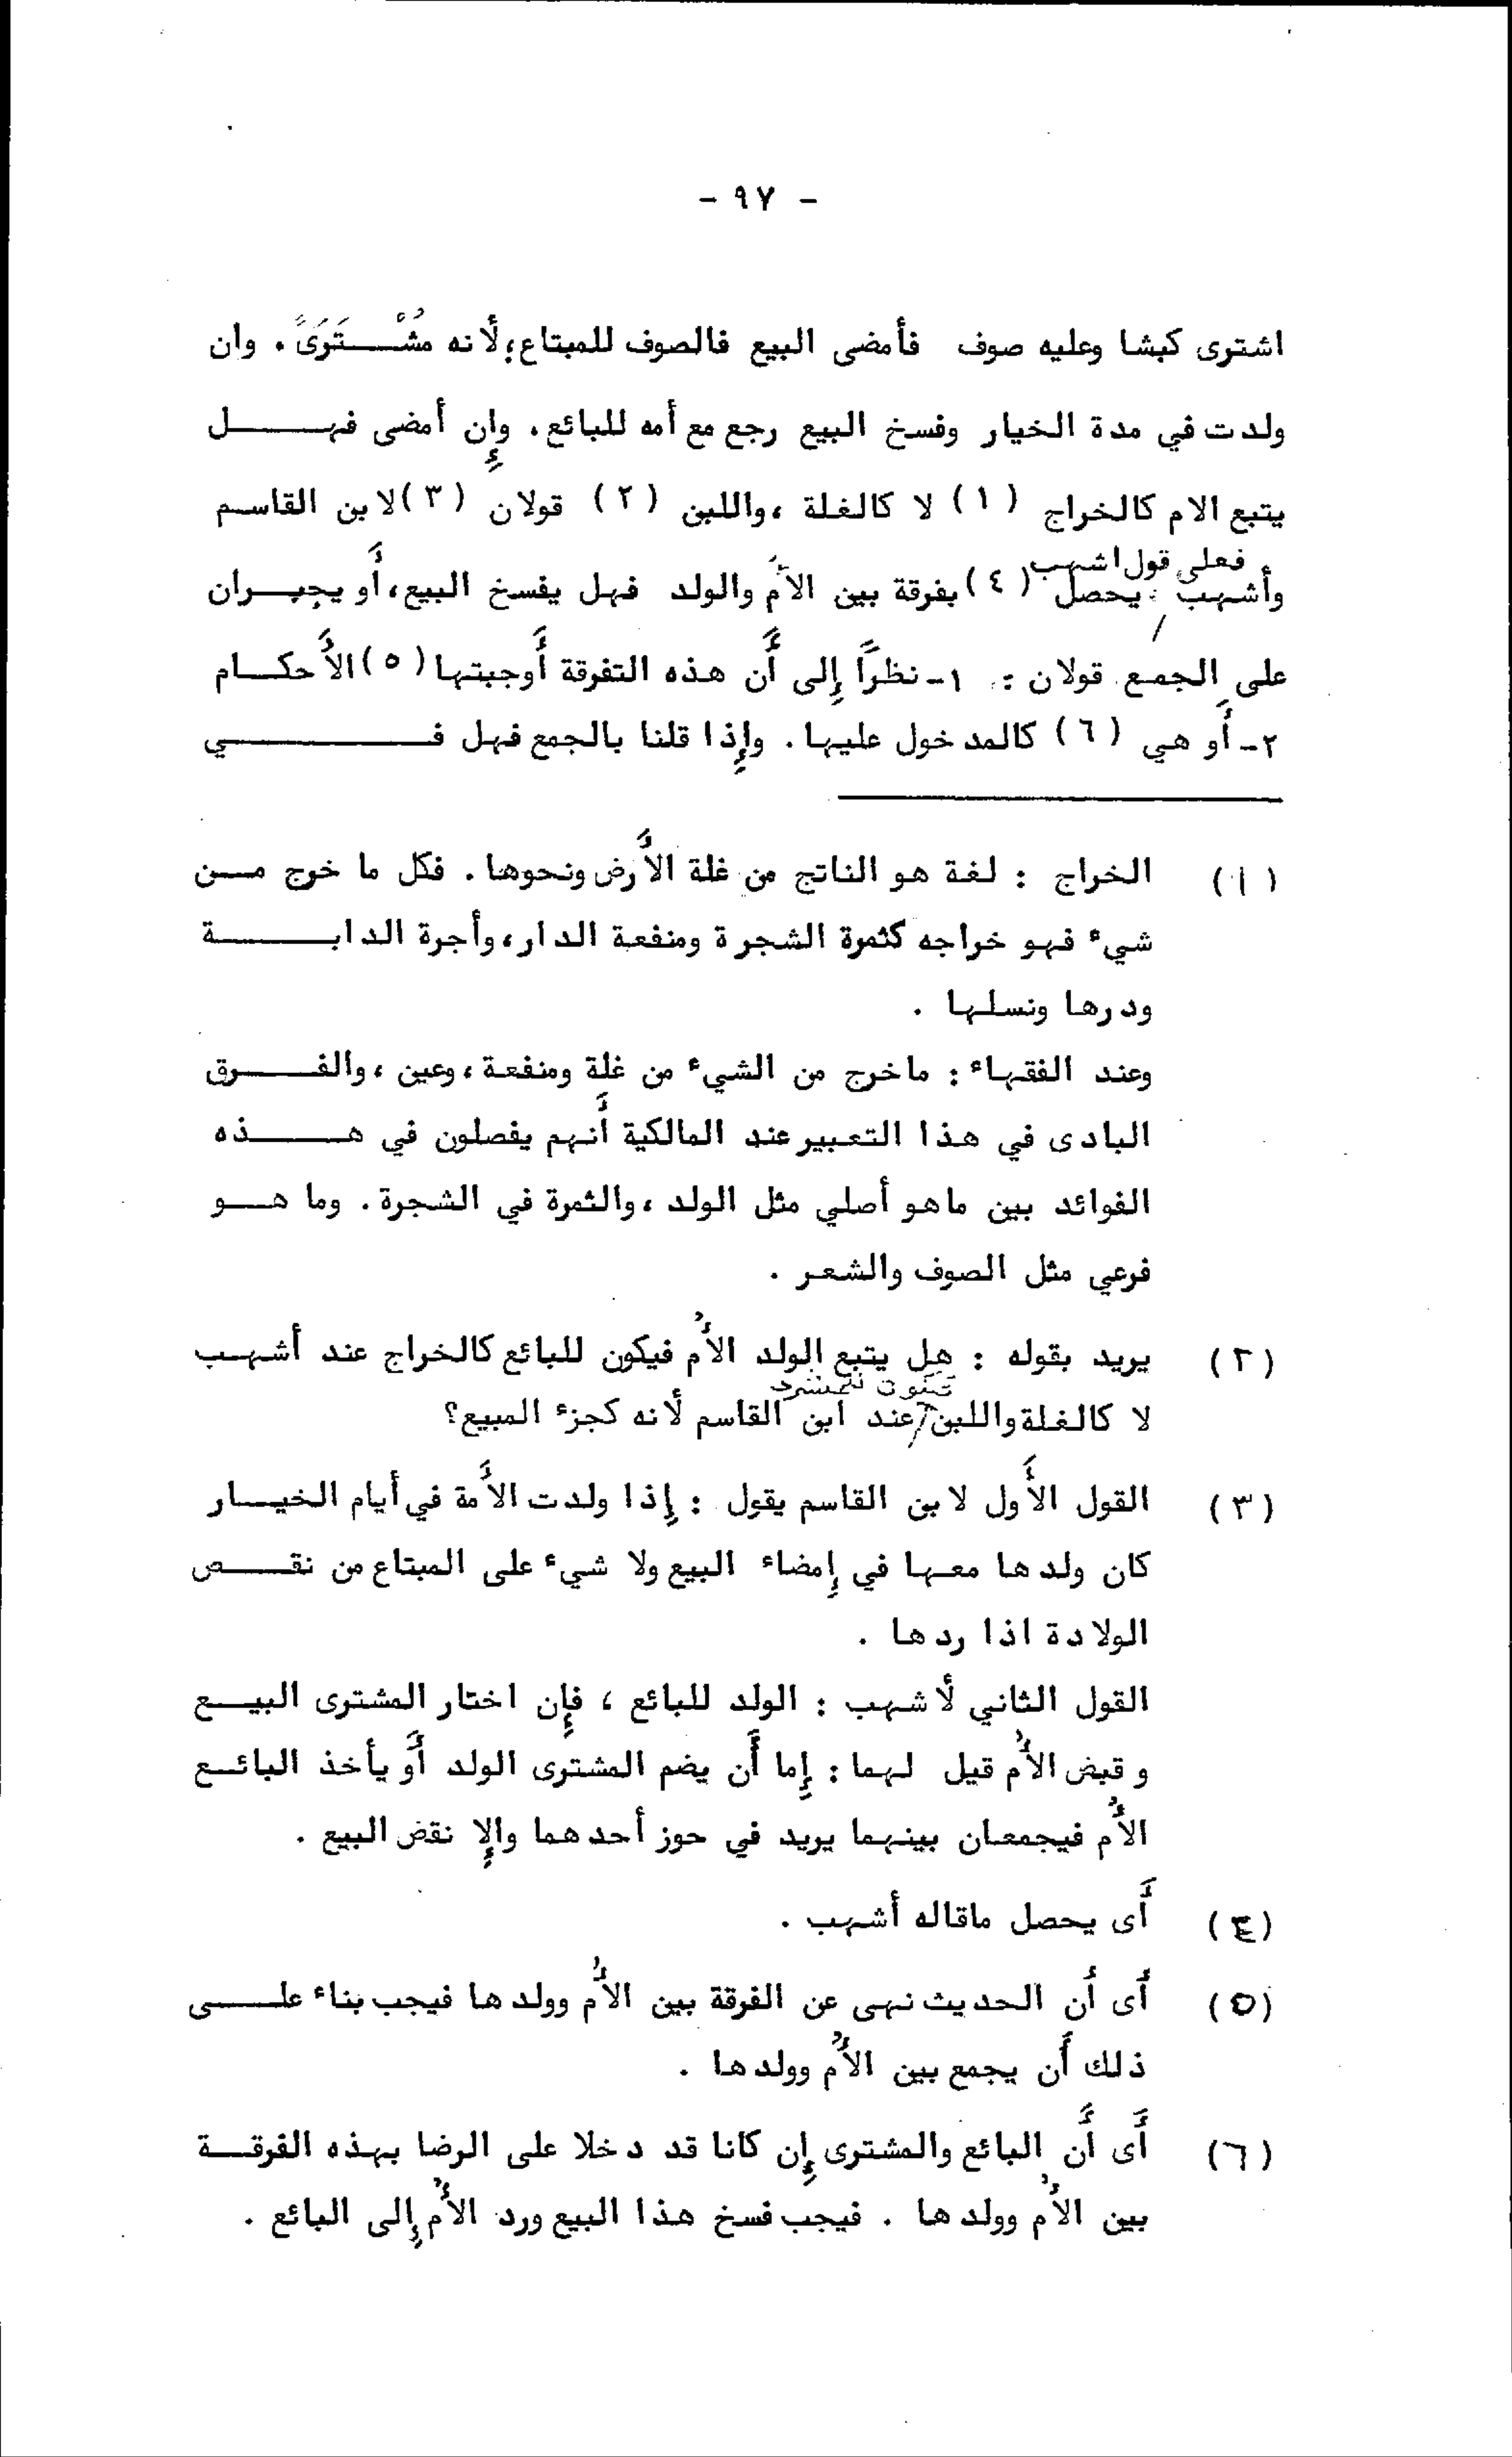 - ٩٧ -
اشترى كبشا وعليه صوف فأمضى البيع فالصوف للمبتاع؛لأنه مُشْــتَرَىً . وان
ولدت في مدة الخيار وفسخ البيع رجع مع أمه للبائع. وإن أمضى فهـــل
يتبع الام كالخراج (١) لا كالغلة ،واللبن (٢) قولان (٣)لابن القاسم
، فعلى قول اشهب
وأشهب / يحصل (٤)بفرقة بين الأم والولد فهل يفسخ البيع،أو يجبــران
على الجمع قولان : ١- نظراً إلى أن هذه التفرقة أوجبتها(٥)الأحكــام
٢- أو هي (٦) كالمدخول عليها . وإذا قلنا بالجمع فهل فـــــــي
(١) الخراج : لغة هو الناتج من غلة الأرض ونحوها . فكل ما خرج مــن
شيء فهو خراجه كثمرة الشجرة ومنفعة الدار،وأجرة الدابـــــة
ودرها ونسلها .
وعند الفقهاء : ماخرج من الشيء من غلة ومنفعة ،وعين ،والفـــرق
البادى في هذا التعبير عند المالكية أنهم يفصلون في هـــذه
الفوائد بين ماهو أصلي مثل الولد ،والثمرة في الشجرة . وما هــو
فرعي مثل الصوف والشعر .
(٢) يريد بقوله : هل يتبع الولد الأم فيكون للبائع كالخراج عند أشهـب
تكون للمشترى
لا كالغلة واللبن / عند ابن القاسم لأنه كجزء المبيع؟
(٣) القول الأول لابن القاسم يقول : إذا ولدت الأمة في أيام الخيــار
كان ولدها معها في إمضاء البيع ولا شيء على المبتاع من نقــص
الولادة اذا ردها .
القول الثاني لأشهب : الولد للبائع ، فإن اختار المشترى البيــع
وقبض الأم قيل لهما : إما أن يضم المشترى الولد أو يأخذ البائــع
الأم فيجمعان بينهما يريد في حوز أحدهما وإلا نقض البيع .
(٤) أى يحصل ماقاله أشهب .
(٥) أى أن الحديث نهى عن الفرقة بين الأم وولدها فيجب بناء علــى
ذلك أن يجمع بين الأم وولدها .
(٦) أى أن البائع والمشترى إن كانا قد دخلا على الرضا بهذه الفرقــة
بين الأم وولدها . فيجب فسخ هذا البيع ورد الأم إلى البائع .